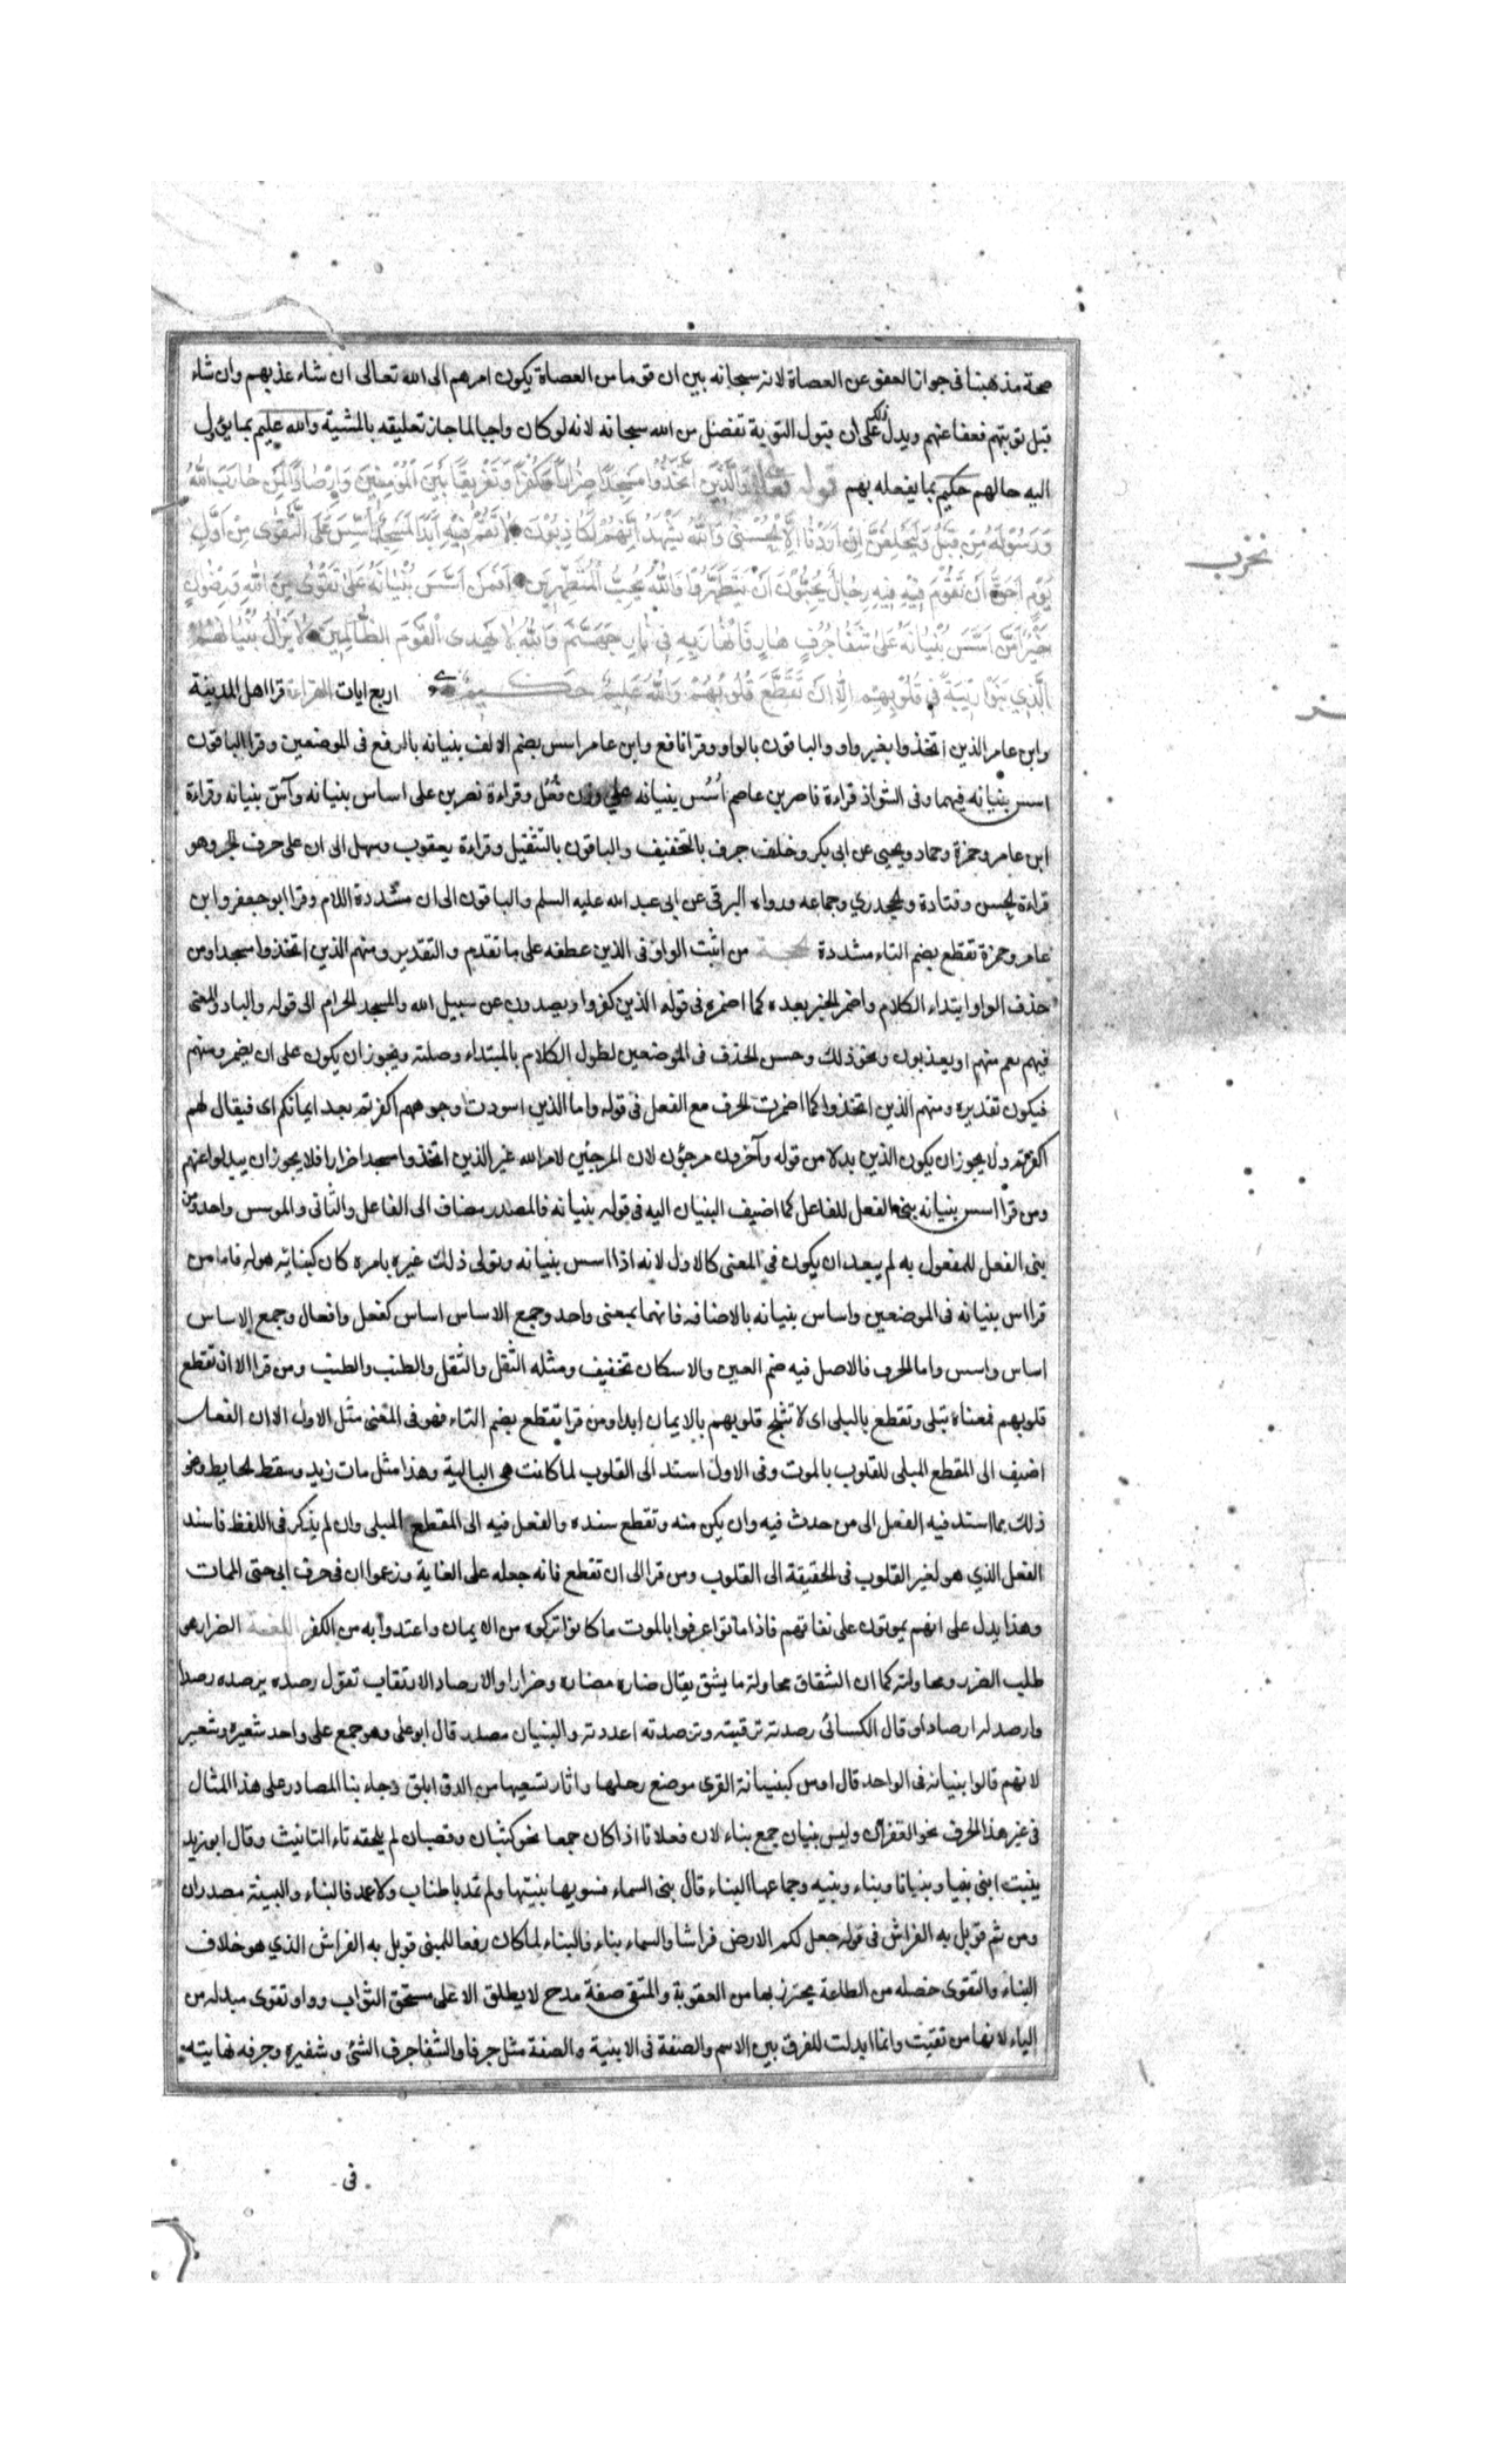 صحة مذهبنا فى جواز العفو عن العصاة لانه سبحانه بين ان قوما من العصاة يكون امرهم الى الله تعالى ان شاء عذبهم وان شاء
قبل توبتهم فعفا عنهم ويدل ذلك على ان قبول التوبة تفضل من الله سبحانه لانه لو كان واجبا لما جاز تعليقه بالمشية والله عليم بما يؤل
اليه حالهم حكيم بما يفعله بهم قوله تعالى وَالَّذِينَ اتَّخَذُوا مَسْجِدًا ضِرَارًا وَكُفْرًا وَتَفْرِيقًا بَيْنَ الْمُؤْمِنِينَ وَإِرْصَادًا لِمَنْ حَارَبَ اللَّهَ
وَرَسُولَهُ مِنْ قَبْلُ وَلَيَحْلِفُنَّ إِنْ أَرَدْنَا إِلَّا الْحُسْنَى وَاللَّهُ يَشْهَدُ إِنَّهُمْ لَكَاذِبُونَ لَا تَقُمْ فِيهِ أَبَدًا لَمَسْجِدٌ أُسِّسَ عَلَى التَّقْوَى مِنْ أَوَّلِ
يَوْمٍ أَحَقُّ أَنْ تَقُومَ فِيهِ فِيهِ رِجَالٌ يُحِبُّونَ أَنْ يَتَطَهَّرُوا وَاللَّهُ يُحِبُّ الْمُطَّهِّرِينَ أَفَمَنْ أَسَّسَ بُنْيَانَهُ عَلَى تَقْوَى مِنَ اللَّهِ وَرِضْوَانٍ
خَيْرٌ أَمْ مَنْ أَسَّسَ بُنْيَانَهُ عَلَى شَفَا جُرُفٍ هَارٍ فَانْهَارَ بِهِ فِي نَارِ جَهَنَّمَ وَاللَّهُ لَا يَهْدِي الْقَوْمَ الظَّالِمِينَ لَا يَزَالُ بُنْيَانُهُمُ
الَّذِي بَنَوْا رِيبَةً فِي قُلُوبِهِمْ إِلَّا أَنْ تَقَطَّعَ قُلُوبُهُمْ وَاللَّهُ عَلِيمٌ حَكِيمٌ اربع ايات القراءة قرا اهل المدينة
وابن عامر الذين اتخذوا بغير واو والباقون بالواو وقرا نافع وابن عامر اسس بضم الالف بنيانه بالرفع فى الموضعين وقرا الباقون
اسس بنيانه فيهما وفى الشواذ قراءة ناصر بن عاصم اُسُس بنيانه على وزن فُعُل وقراءة نصر بن على اساس بنيانه وآسّ بنيانه وقراءة
ابن عامر وحمزة وحماد ويحيى عن ابى بكر وخلف جرف بالتخفيف والباقون بالتثقيل وقراءة يعقوب وسهل الى ان على حرف الجر وهو
قراءة الحسن وقتادة والجحدري وجماعه ورواه البرقى عن ابى عبد الله عليه السلم والباقون الى ان مشددة اللام وقرا ابو جعفر وابن
عامر وحمزة تقطع بضم التاء مشددة الحجة من اثبت الواو فى الذين عطفه على ما تقدم والتقدير ومنهم الذين اتخذوا مسجدا ومن
حذف الواو ابتداء الكلام واضمر الخبر بعده كما اضمره فى قوله الذين كفروا ويصدون عن سبيل الله والمسجد الحرام الى قوله والباد والمعنى
فيهم منهم او يعذبون ونحو ذلك وحسن الحذف فى الموضعين لطول الكلام بالمبتداء وصلته ويجوز ان يكون على ان يضمر ومنهم
فيكون تقديره ومنهم الذين اتخذوا كما اضمرت الحرف مع الفعل فى قوله واما الذين اسودت وجوههم اكفرتم بعد ايمانكم اى فيقال لهم
اكفرتم ولا يجوز ان يكون الذين بدلا من قوله وآخرون مرجؤن لان المرجئين لامر الله غير الذين اتخذوا مسجدا ضرارا فلا يجوز ان يبدلوا عنهم
ومن قرا اسس بنيانه بنى الفعل للفاعل كما اضيف البنيان اليه فى قوله بنيانه فالمصدر مضاف الى الفاعل والثانى والموسس واحد ومن
بنى الفعل للمفعول به لم يبعد ان يكون فى المعنى كالاول لانه اذا اسس بنيانه وتولى ذلك غيره بامره كان كبنائه هو له فاما من
قرا اس بنيانه فى الموضعين واساس بنيانه بالاضافه فانهما بمعنى واحد وجمع الاساس اساس كفعل وافعال وجمع الاساس
اساس واسس واما الجرف فالاصل فيه ضم العين والاسكان تخفيف ومثله الثقل والثقل والطنب والطنب ومن قرا الا ان تقطع
قلوبهم فمعناه تبلى وتقطع بالبلى اى لا تثلج قلوبهم بالايمان ابدا ومن قرا تقطع بضم التاء فهو فى المعنى مثل الاول الا ان الفعل
اضيف الى المقطع المبلى للقلوب بالموت وفى الاول اسند الى القلوب لما كانت هى البالية وهذا مثل مات زيد وسقط الحايط ونحو
ذلك مما اسند فيه الفعل الى من حدث فيه وان يكن منه وتقطع سنده والفعل فيه الى المقطع المبلى وان لم يذكر فى اللفظ فاسند
الفعل الذي هو لغير القلوب فى الحقيقة الى القلوب ومن قرا الى ان تقطع فانه جعله على الغاية وزعموا ان فى حرف ابى حتى الممات
وهذا يدل على انهم يموتون على نفاقهم فاذا ماتوا عرفوا بالموت ما كانوا تركوه من الايمان واعتدوا به من الكفر اللغة الضرار هو
طلب الضرر ومحاولته كما ان الشقاق محاولة ما يشق يقال ضاره مضاره وضرارا والارصاد الارتقاب تقول رصده يرصده رصدا
وارصد له ارصادا وقال الكسائى رصدته ترقبته وترصدته اعددته والبنيان مصدر قال ابو على وهو جمع على واحد شعيره وشعير
لانهم قالوا بنيانه فى الواحد قال اوس كبنيانة القرى موضع رحلها واثار نسعيها من الدف ابلق وجاء بنا المصادر على هذا المثال
فى غير هذا الحرف نحو الغفران وليس بنيان جمع بناء لان فعلانا اذا كان جمعا نحو كثبان وقضبان لم يلحقه تاء التانيث وقال ابو زيد
بنيت ابنى بنيا وبنيانا وبناء وبنيه وجماعها البناء قال بنى السماء فسويها بنيتها ولم تمد باطناب ولا عمد فالبناء والبنية مصدران
ومن ثم قوبل به الفراش فى قوله جعل لكم الارض فراشا والسماء بناء فالبناء لما كان رفعا للمبنى قوبل به الفراش الذي هو خلاف
البناء والتقوى خصله من الطاعة يحترز بها من العقوبة والمتقى صفة مدح لا يطلق الا على مستحق الثواب وواو تقوى مبدله من
الياء لانها من تقيت وانما ابدلت للفرق بين الاسم والصفة فى الابنية والصفة مثل جرفا والشفا جرف الشئ وشفيره وجرفه نهايته
فى